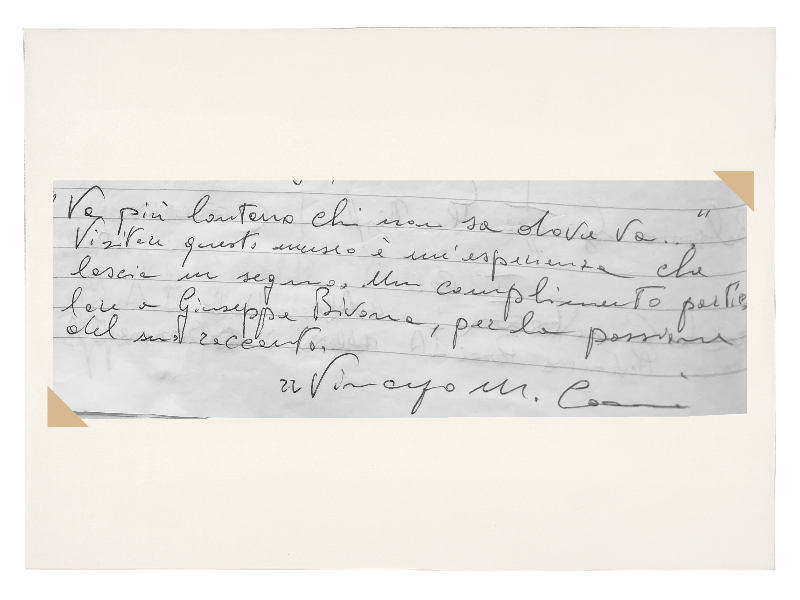 "Va più lontano chi non sa dove va..."
Visitare questo museo è un'esperienza che
lascia un segno. Un complimento partico
lare a Giuseppe Bivona, per la passione
del suo racconto.
Vincenzo M.